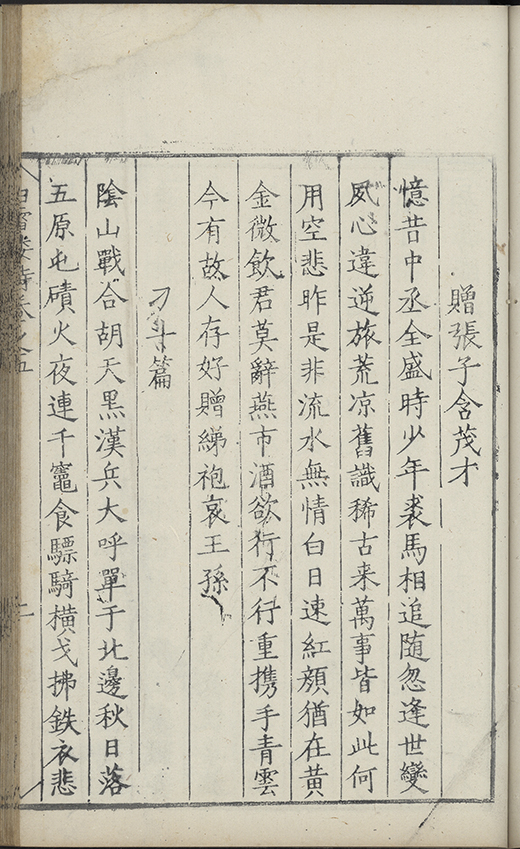 贈張子含茂才
憶昔中丞全盛時少年裘馬相追随忽逢世變
夙心違逆旅荒凉舊識稀古来萬事皆如此何
用空悲昨是非流水無情白日速紅顔猶在黄
金微飲君莫辭燕市酒欲行不行重携手青雲
今有故人存好贈綈袍哀王孫
刁斗篇
陰山戰合胡天黑漢兵大呼單于北邊秋日落
五原屯磧火夜連千竈食驃騎横戈拂鉄衣悲